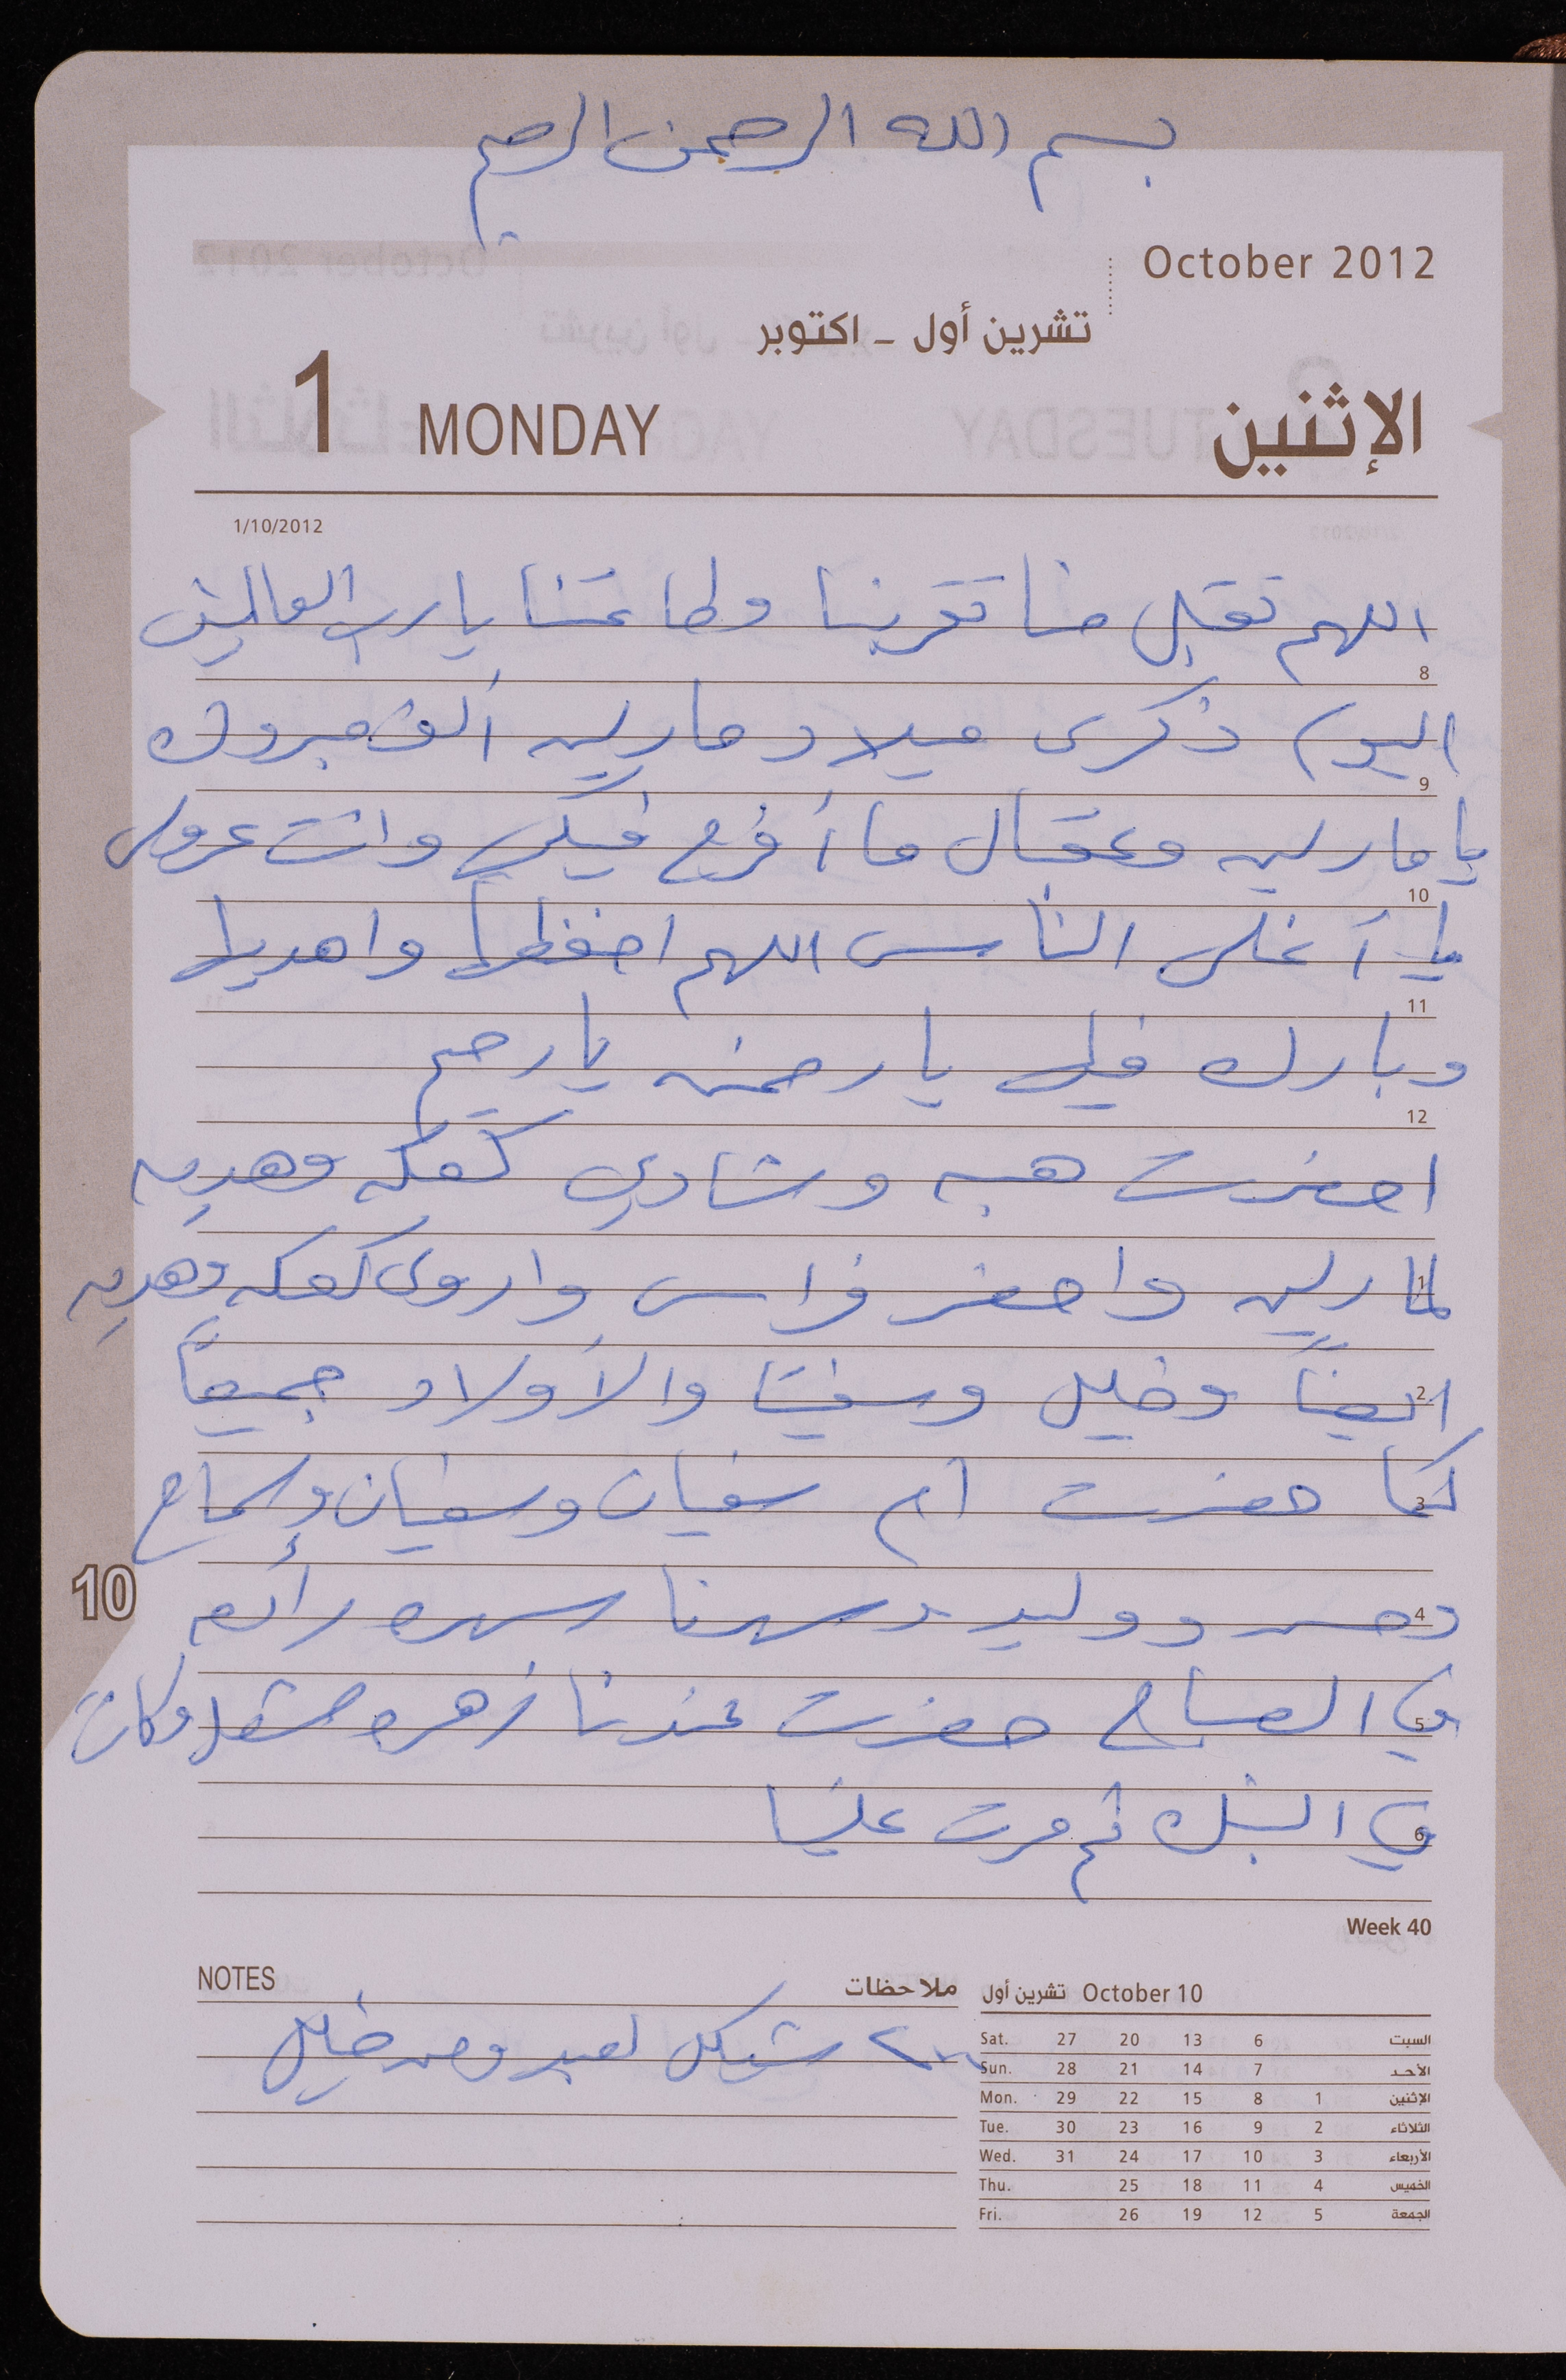 بسم الله الرحمن الرحيم
October 2012
تشرين أول - اكتوبر
1 MONDAY الإثنين
1/10/2012
اللهم تقبل منا تقربنا وطاعتنا يا رب العالمين
8
اليوم ذكرى ميلاد مارلين ألف مبروك
9
يا مارلين وعقبال ما أفرح فيكي وانت عروس
10
يا أغلى الناس اللهم احفظها واهديها
11
وبارك فيها يا رحمن يا رحيم
12
احضرت هبه وشادي كعكه وهديه
1
لمارلين واحضر فراس واروى كعكه وهديه
2
ايضاً وخليل وسفيتا والأولاد جميعاً
3
كما حضرت أم سفيان وسفيان وسماح
10
4
ووليد وسهرنا سهره رائعه
5
في الصباح حضرت عندنا زهره وكانت
6
في البنك ثم مرت علينا
Week 40
NOTES ملاحظات
شيكل لعبير ومن خليل
October 10 تشرين أول
Sat. 27 20 13 6 السبت
Sun. 28 21 14 7 الأحد
Mon. 29 22 15 8 1 الإثنين
Tue. 30 23 16 9 2 الثلاثاء
Wed. 31 24 17 10 3 الأربعاء
Thu. 25 18 11 4 الخميس
Fri. 26 19 12 5 الجمعة